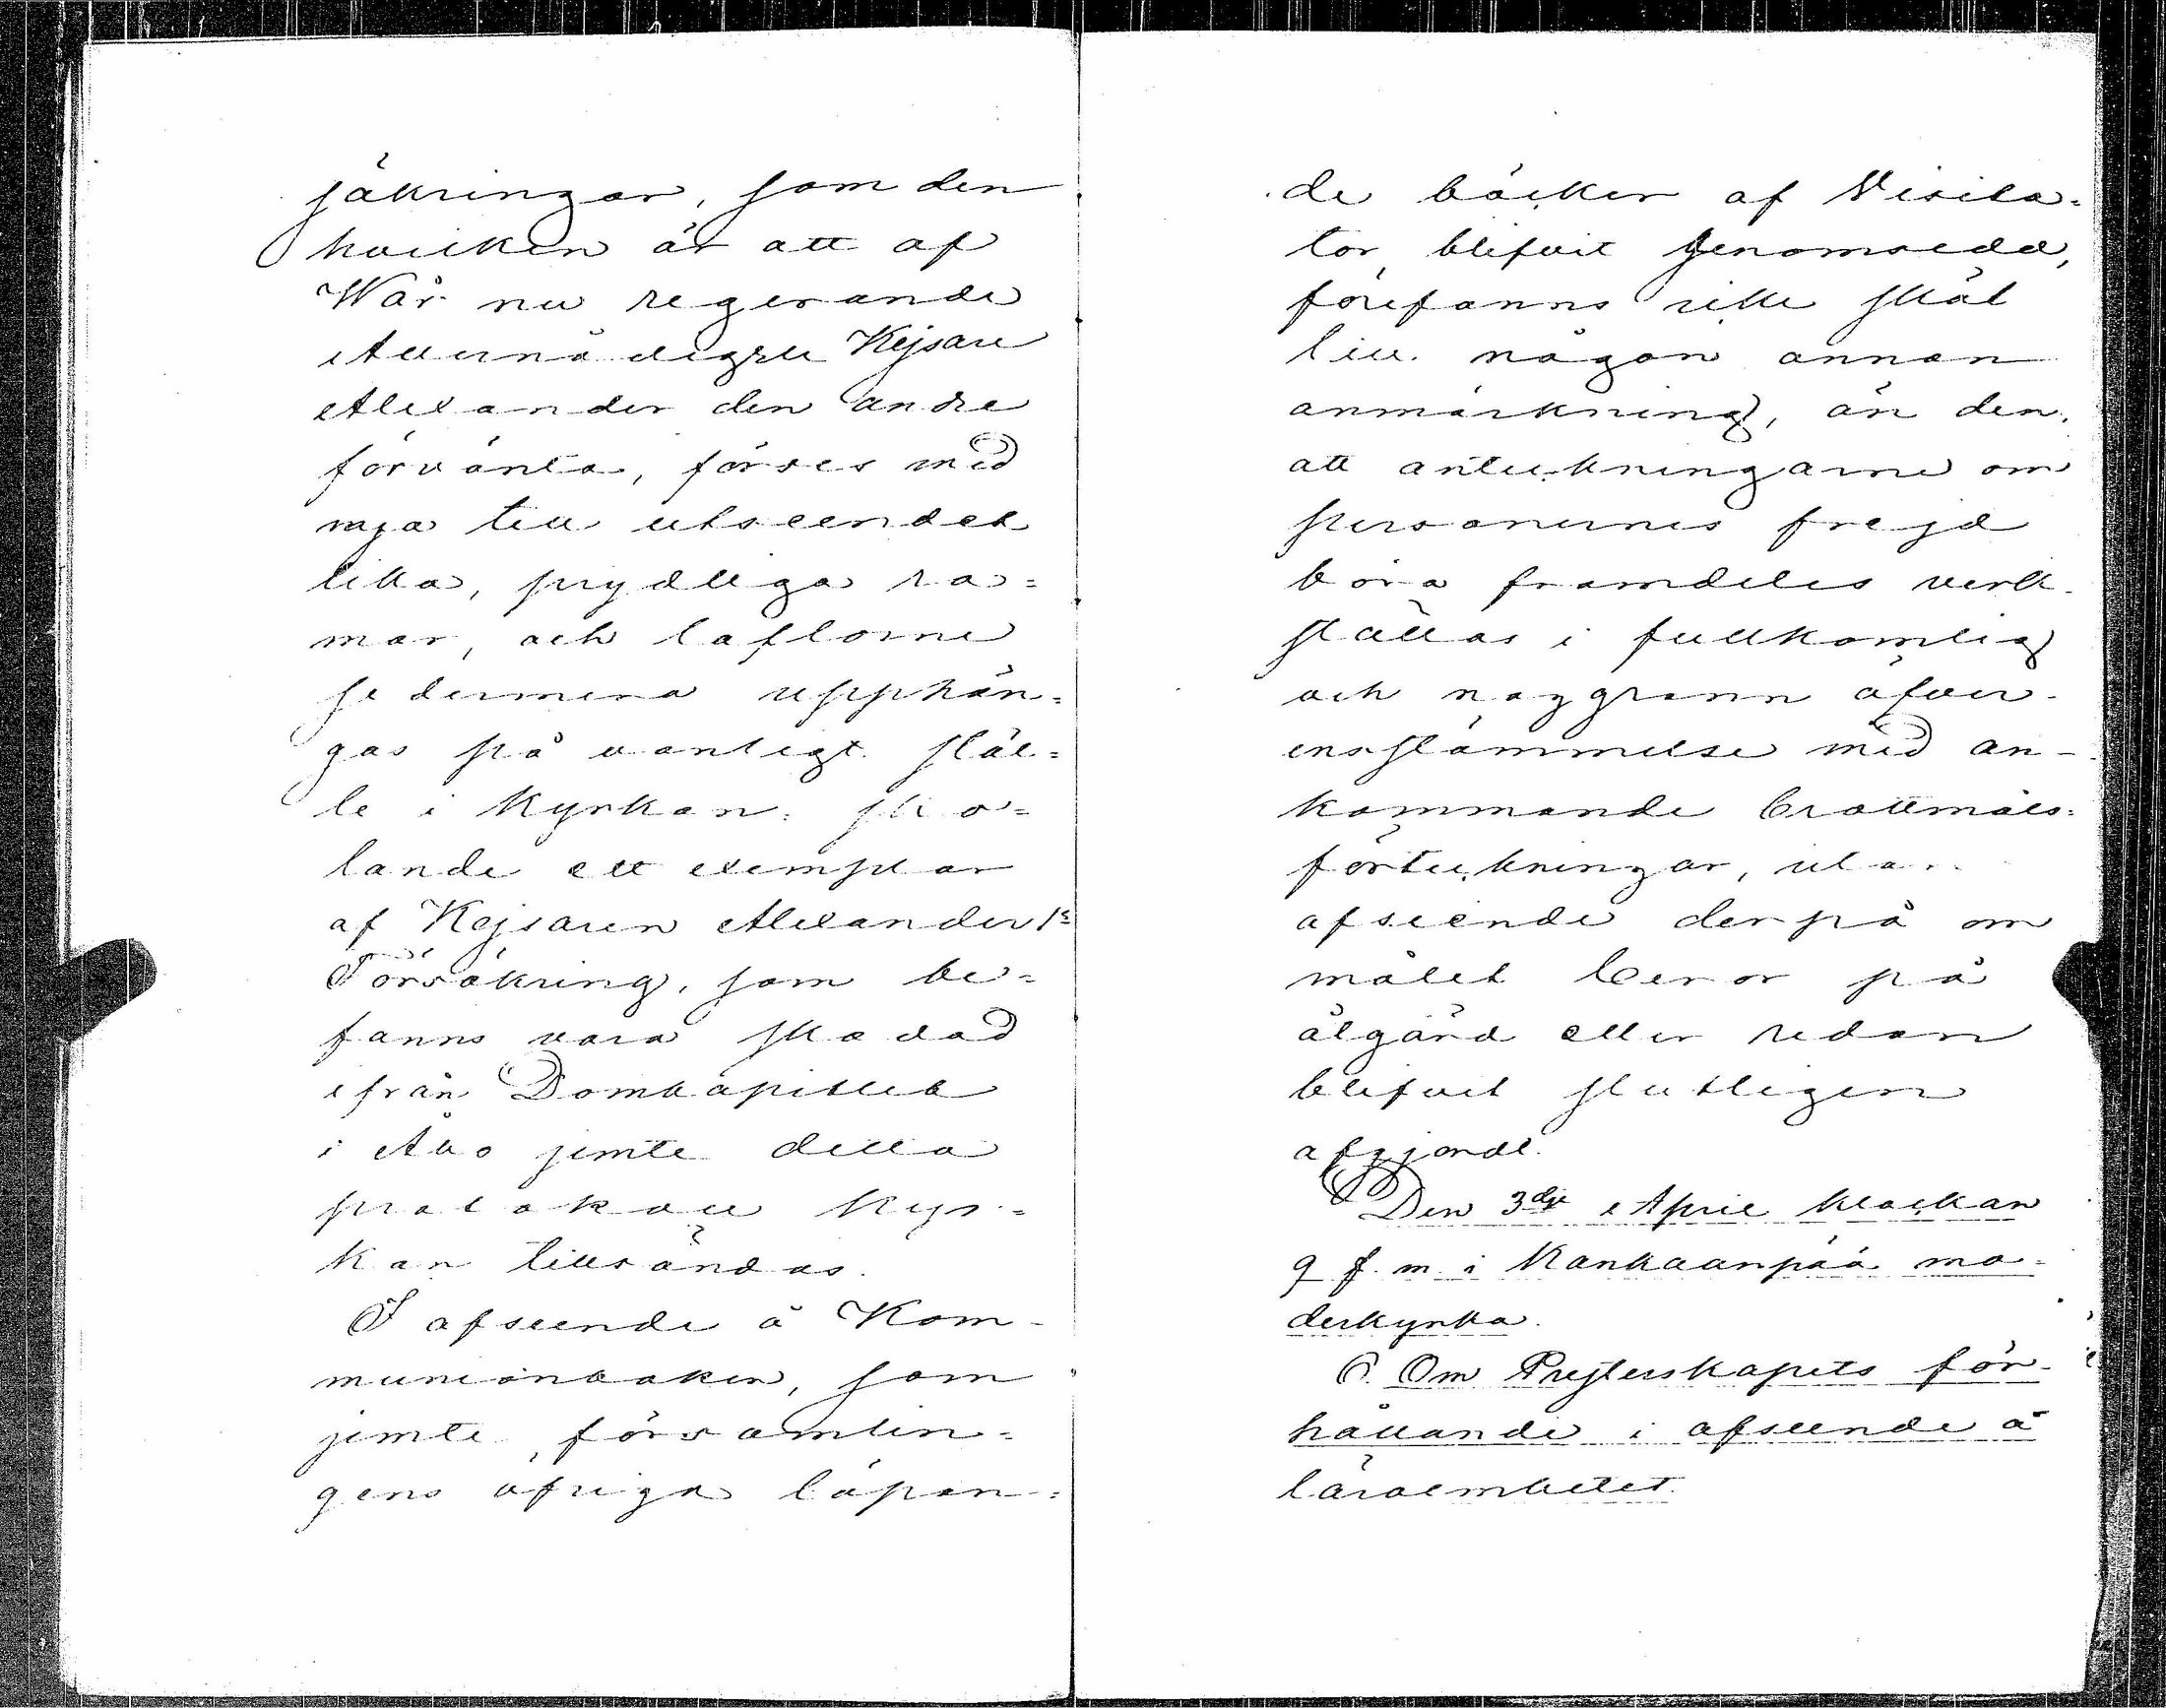 säkringar, som den
hvilken är att af
Wår nu regerande
Allernådigste Kejsare
Alexander den andre
förvänta, förses med
nya till utseendet
lika, prydliga ra=
mar, och taflorne
sedermera upphän=
gas på vanligt stäl=
le i kyrkan: sko=
lande ett exemplar
af Kejsaren Alexander 1s
Försäkring, som be=
fanns vara skadad
ifrån Domkapitlet
i Åbo jemte detta
protokoll kyr=
kan tillsändas.
I afseende å Kom-
munionboken, som
jemte församlin=
gens öfriga löpan=
de böcker af Visita=
tor blifvit genomsedd,
förefanns icke skäl
till någon annan
anmärkning, än den,
att anteckningarne om
personernes frejd
böra framdeles verk-
ställas i fullkomlig
och noggrann öfver-
ensstämmelse med an-
kommande brottmåls=
förteckningar, utan
afseende derpå om
målet beror på
åtgärd eller redan
blifvit slutligen
afgjordt.
Den 3dje April klockan
9 f. m. i Kankaanpää mo-
derkyrka.
6. Om Presterskapets för-
hållande i afseende å
läroembetet.